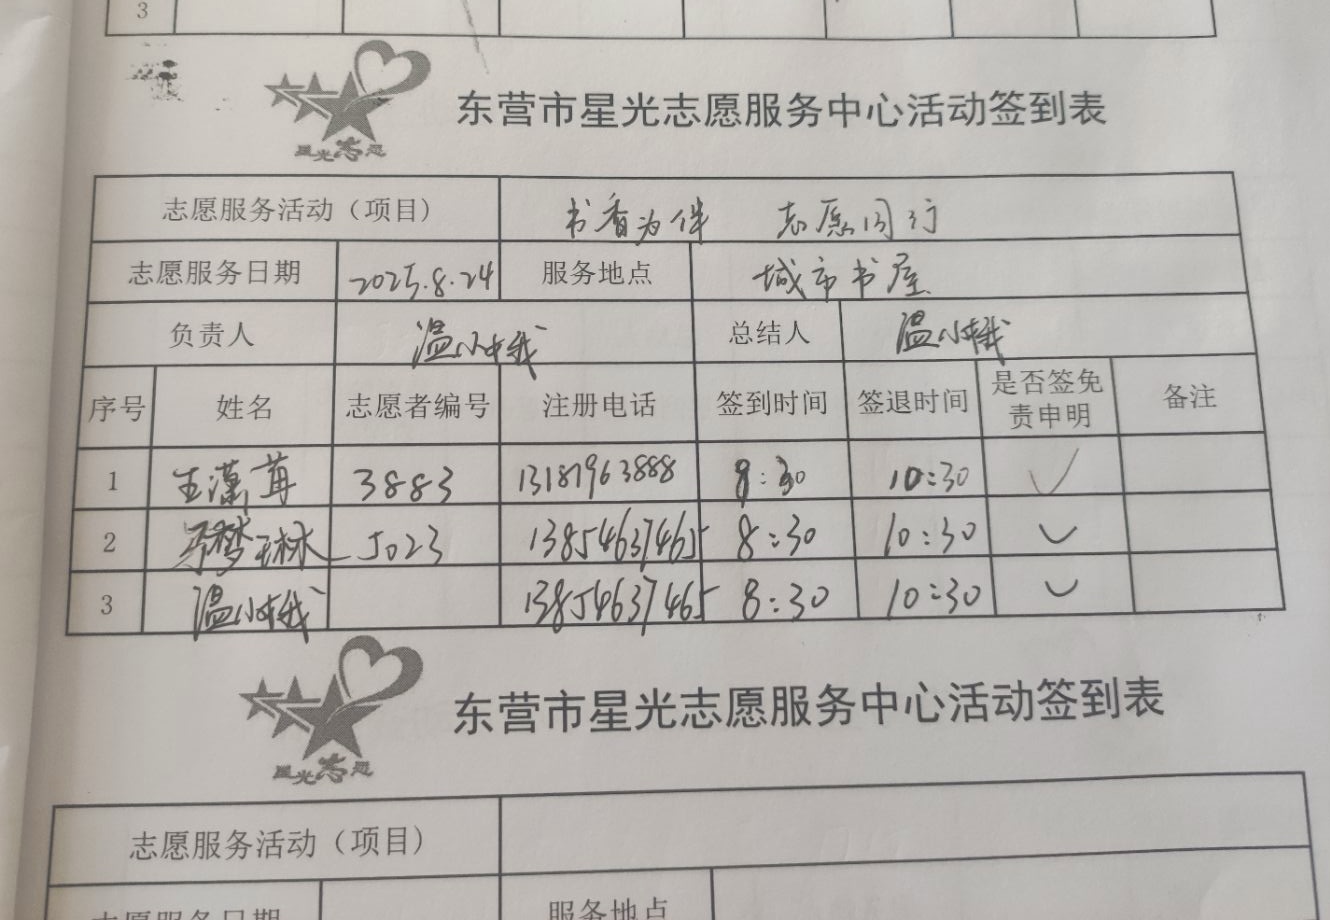 3
星光志愿
东营市星光志愿服务中心活动签到表
志愿服务活动（项目） 书香为伴 志愿同行
志愿服务日期 2025.8.24 服务地点 城市书屋
负责人 温小娥 总结人 温小娥
序号 姓名 志愿者编号 注册电话 签到时间 签退时间 是否签免责申明 备注
1 王潇苒 3883 13181963888 8:30 10:30 ✓
2 梦琳 5023 13854637465 8:30 10:30 ✓
3 温小娥 13854637465 8:30 10:30 ✓
星光志愿
东营市星光志愿服务中心活动签到表
志愿服务活动（项目）
志愿服务日期 服务地点